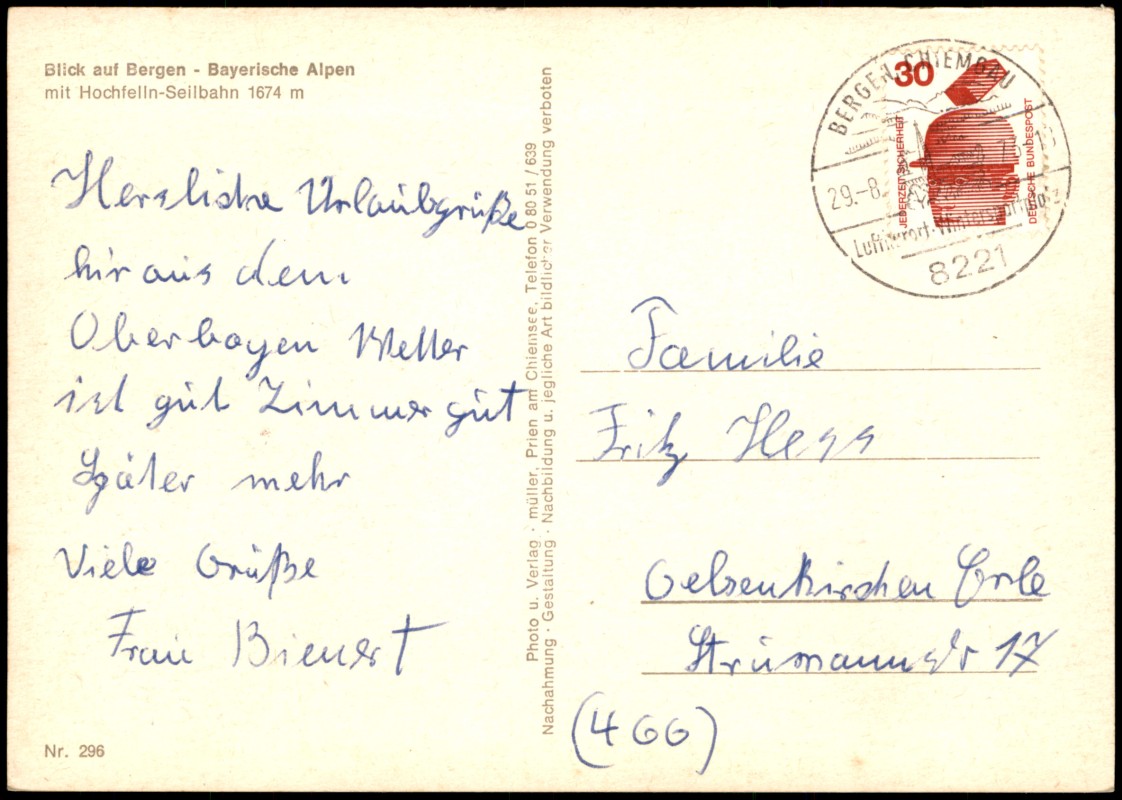 Blick auf Bergen - Bayerische Alpen
mit Hochfelln-Seilbahn 1674 m
Herzliche Urlaubgrüße
hir aus dem
Oberbayen Wetter
ist gut Zimmer gut
Später mehr
Viele Grüße
Frau Bienert
Nr. 296
Photo u. Verlag · müller, Prien am Chiemsee, Telefon 0 80 51 / 639
Nachahmung · Gestaltung · Nachbildung u. jegliche Art bildlicher Verwendung verboten
BERGEN, CHIEMGAU
29.-8.
Luftkurort-Wintersportplatz
8221
30
JEDERZEIT SICHERHEIT
DEUTSCHE BUNDESPOST
Familie
Fritz Hess
Gelsenkirchen Erle
Strümannstr 17
(466)